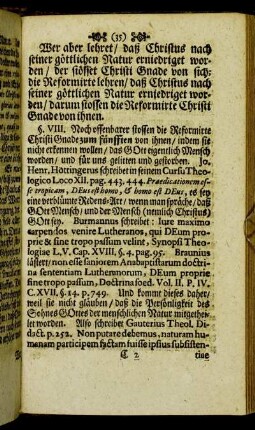 (35)
Wer aber lehret/ daß Christus nach
seiner göttlichen Natur erniedriget wor-
den/ der stösset Christi Gnade von sich:
die Reformirte lehren/ daß Christus nach
seiner göttlichen Natur erniedriget wor-
den/ darum stossen die Reformirte Christi
Gnade von ihnen.
§. VIII. Noch offenbarer stossen die Reformirte
Christi Gnade zum fünfften von ihnen/ indem sie
nicht erkennen wollen/ daß GOtt eigentlich Mensch
worden/ und für uns gelitten und gestorben. Jo.
Henr. Höttingerus schreibet in seinem Cursu Theo-
logico Loco XII. pag. 443. 444. Praedicationem es-
se tropicam, DEus est homo, & homo est DEus, es sey
eine verblümte Redens-Art/ wenn man spräche/ daß
GOtt Mensch/ und der Mensch (nemlich Christus)
GOtt sey. Burmannus schreibet: Jure maximo
carpendos venire Lutheranos, qui DEum pro-
prie & sine tropo passum velint, Synopsi Theo-
logiae L. V. Cap. XVIII. §. 4. pag. 95. Braunius
lästert/ non esse saniorem Anabaptistarum doctri-
na sententiam Lutheranorum, DEum proprie
sine tropo passum, Doctrina foed. Vol. II. P. IV.
C. XVII. §. 14. p. 749. Und kommt dieses daher/
weil sie nicht glauben/ daß die Persönligkeit des
Sohnes GOttes der menschlichen Natur mitgethei-
let worden. Also schreibet Gauterius Theol. Di-
dact. p. 252. Non putare debemus, naturam hu-
manam participem factam fuisse ipsius subsisten-
C 2 tiae